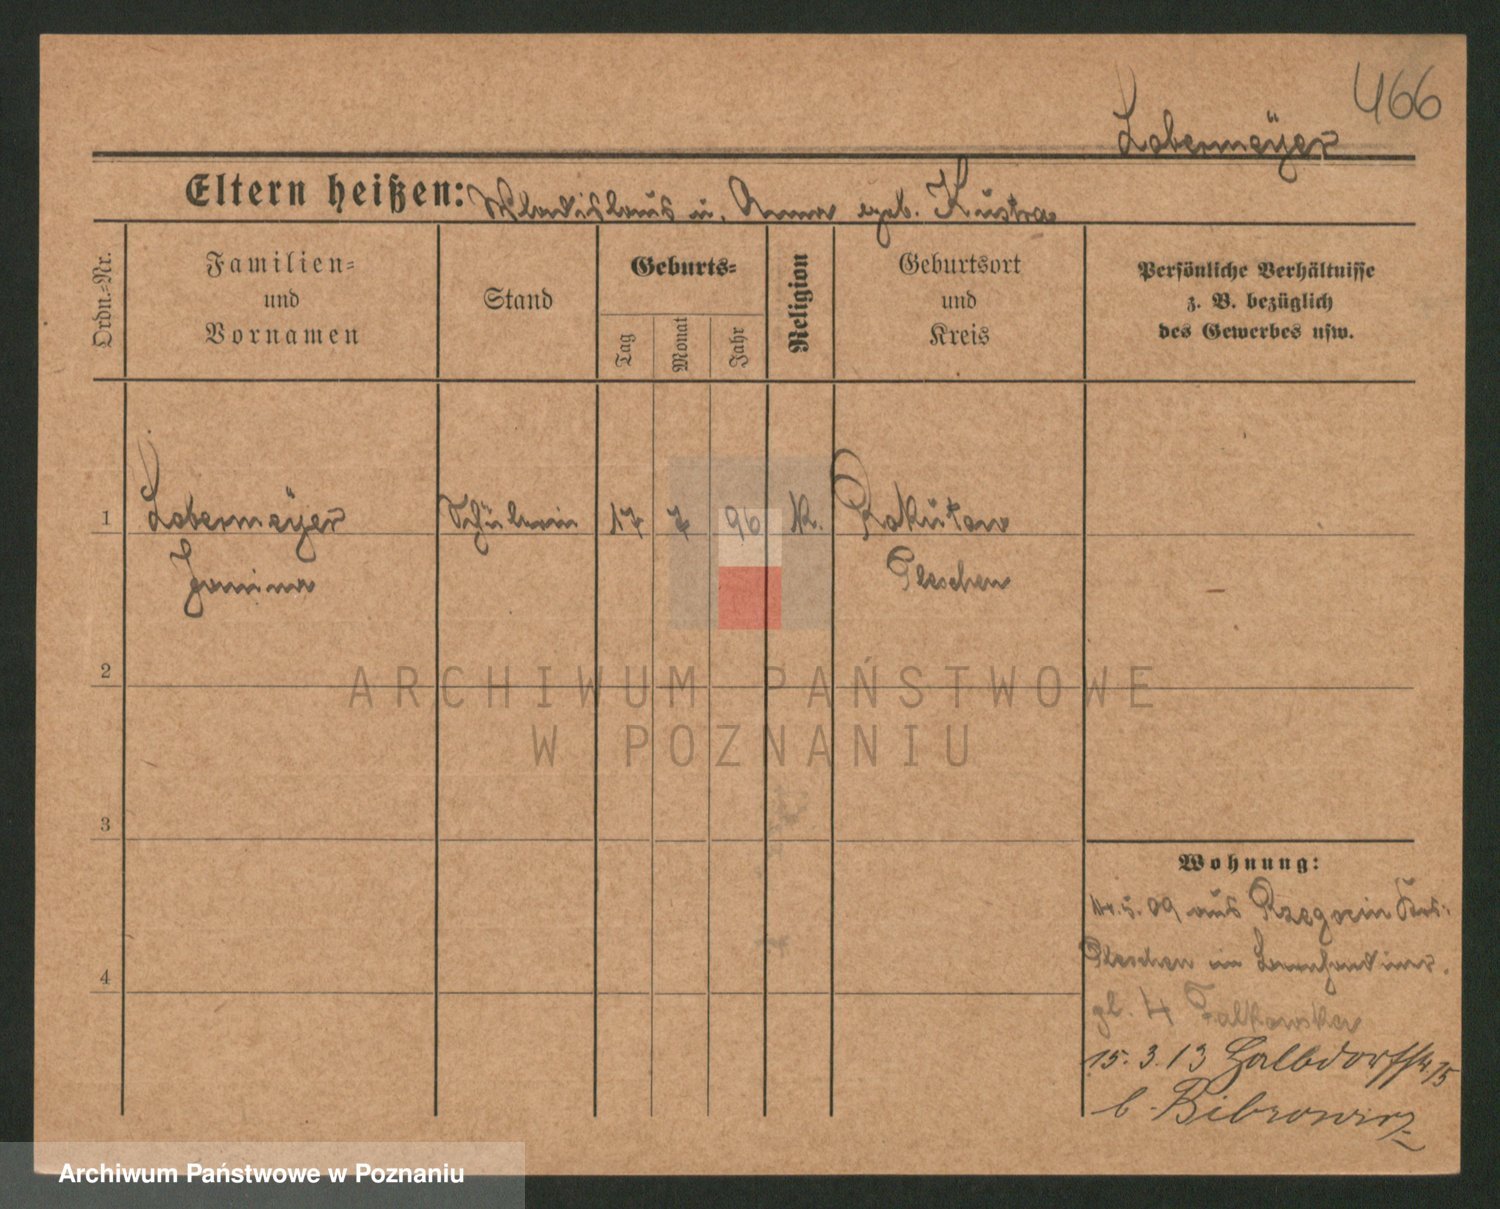 466
Lobermeÿer
Eltern heißen: Wladislaus u. Anna geb. Kustra
Ordn.-Nr.
Familien-
und
Vornamen
Stand
Geburts-
Tag
Monat
Jahr
Religion
Geburtsort
und
Kreis
Persönliche Verhältnisse
z. B. bezüglich
des Gewerbes usw.
1 Lobermeÿer Schülerin 17 7 96 K. Rokutow
Janina Pleschen
2
ARCHIWUM PAŃSTWOWE
W POZNANIU
3
4
Wohnung:
5. 09 aus Rzegocin Krs.
Pleschen in
gl. 4 Falkowska
15. 3. 13 Halbdorfstr. 15
b. Bibrowicz
Archiwum Państwowe w Poznaniu